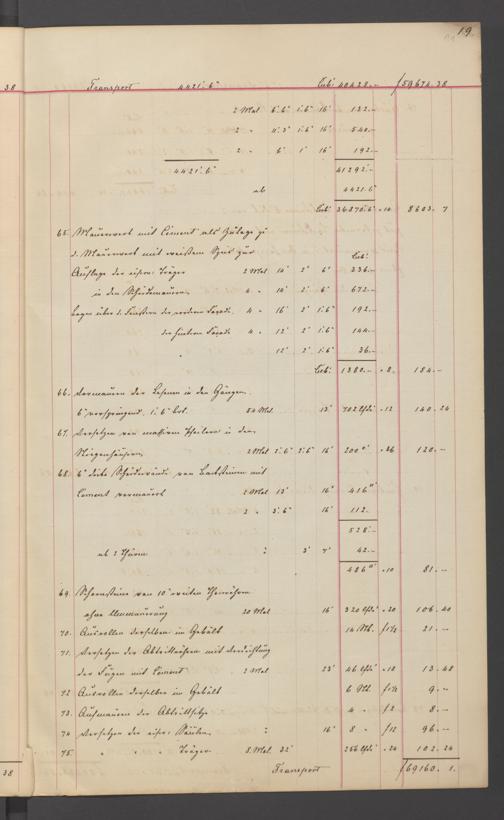 19
38 Transport 4421'.6" Cub' 40428.– f 59674.38
2 Mal 6'.6" 1'.6" 16' 132.–
2 " 4'.3' 1'.6" 16' 540.–
2 " 6' 1' 16' 192.–
4421'.6" 41292'.–
ab 4421.6"
Cub' 36870'.6" 14 8603. 7
65. Mauerwerk mit Cement als Zulage zu
d. Mauerwerk mit weißem Speis zur Cub'
Auflage der eisern. Träger 2 Mal 14' 2' 6" 336.–
in den Scheidemauern 4 " 14' 2' 6" 672.–
Bogen über d. Fenstern der vordern Façade 4 " 16' 2' 1'.6" 192.–
der hintern Façade 4 " 12' 2' 1'.6" 144.–
12' 2' 1'.6" 36.–
Cub' 1380.– " 8. 184.–
66. Vermauern der Lisenen in den Gängen
6" vorspringend, 1'.6" brt. 54 Mal 13' 702 lfd' " 12 140. 24
67. Versetzen von massiven Theilern in den
Stiegenhäusern 2 Mal 2'.6" 2'.6" 16' 200" " 36 120.–
68. 6" dicke Scheidewände von Backsteinen mit
Cement vermauert 2 Mal 13' 16' 416"
2 " 3'.6" 16' 112.
528.–
ab 2 Thüren 2 3' 7' 42.–
486" " 10 81.–
69. Schornsteine von 10" weiten Thonröhren
ohne Ummauerung 20 Mal 16' 320 lfd' " 20 106.40
70. Ausrollen derselben im Gebälk 14 Stk. f 1½ 21.–
71. Versetzen der Abtrittröhren mit Verdichtung
der Fugen mit Cement 2 Mal 23' 46 lfd' " 18 13.48
72 Ausrollen derselben im Gebälk 6 Stk. f 1½ 9.–
73. Aufmauern der Abtrittsitze 4 " f 2 8.–
74 Versetzen der eiser. Säulen 2 16' 8 " f 12 96.–
75. " " " Träger 8 Mal 32' 256 lfd' " 24 102.24
38 Transport f 69160. 1.